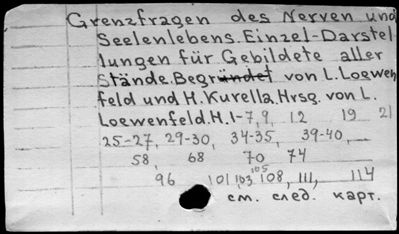 Grenzfragen des Nerven und
Seelenlebens. Einzel-Darstel
lungen für Gebildete aller
Stände. Begründet von L. Loewen
feld und H. Kurella. Hrsg. von L.
Loewenfeld. H. 1-7, 9, 12 19 21
25-27, 29-30, 34-35, 39-40,
58, 68 70 74
96 101, 103 105 108, 111, 114
см. след. карт.